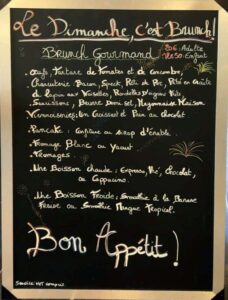 Le Dimanche, c'est Brunch!
Brunch Gourmand 20€ Adulte
12€50 Enfant
. Œufs, Tartare de Tomates et de Concombre,
. Charcuterie: Bacon, Speck, Rôti de Porc, Pâté en Croûte
de Lapin aux Noisettes, Rondelles d'Agrumes
. Saucissons, Beurre Demi sel, Mayonnaise Maison
. Viennoiseries: Un Croissant et Pain au Chocolat
. Pancake: Confiture ou Sirop d'érable.
. Fromage Blanc ou Yaourt
. Fromages.
. Une Boisson chaude: Expresso, Thé, Chocolat,
ou Cappucino.
. Une Boisson Froide: Smoothie à la Banane
Fraise ou Smoothie Mangue Tropical.
Bon Appétit!
Service NET compris